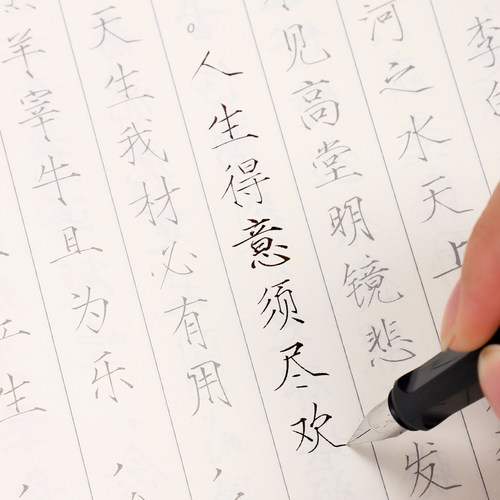 李
河之水天上
见高堂明镜悲发
。人生得意须尽欢
天生我材必有用，
羊宰牛且为乐，
生